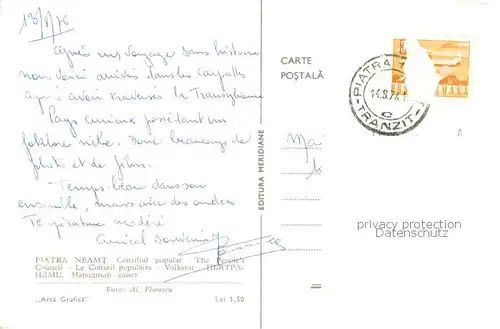 13/8/76
Après un voyage sans histoire
nous voici arrivés dans les Carpates
après avoir traversé la Transylvanie
Pays curieux possédant un
folklore riche. Donc beaucoup de
photo et de films.
- Temps beau dans son
ensemble, mais avec des ondées
Température modéré
Amical Souvenir
PIATRA NEAMȚ Consiliul popular - The People's
Council - Le Conseil populaire - Volksrat - ПЬЯТРА-
НЯМЦ Народный совет
Foto: Al. Florescu
„Arta Grafică"
Lei 1,50
EDITURA MERIDIANE
CARTE
POȘTALĂ
PIATRA
14.8.76
TRANZIT
privacy protection
Datenschutz